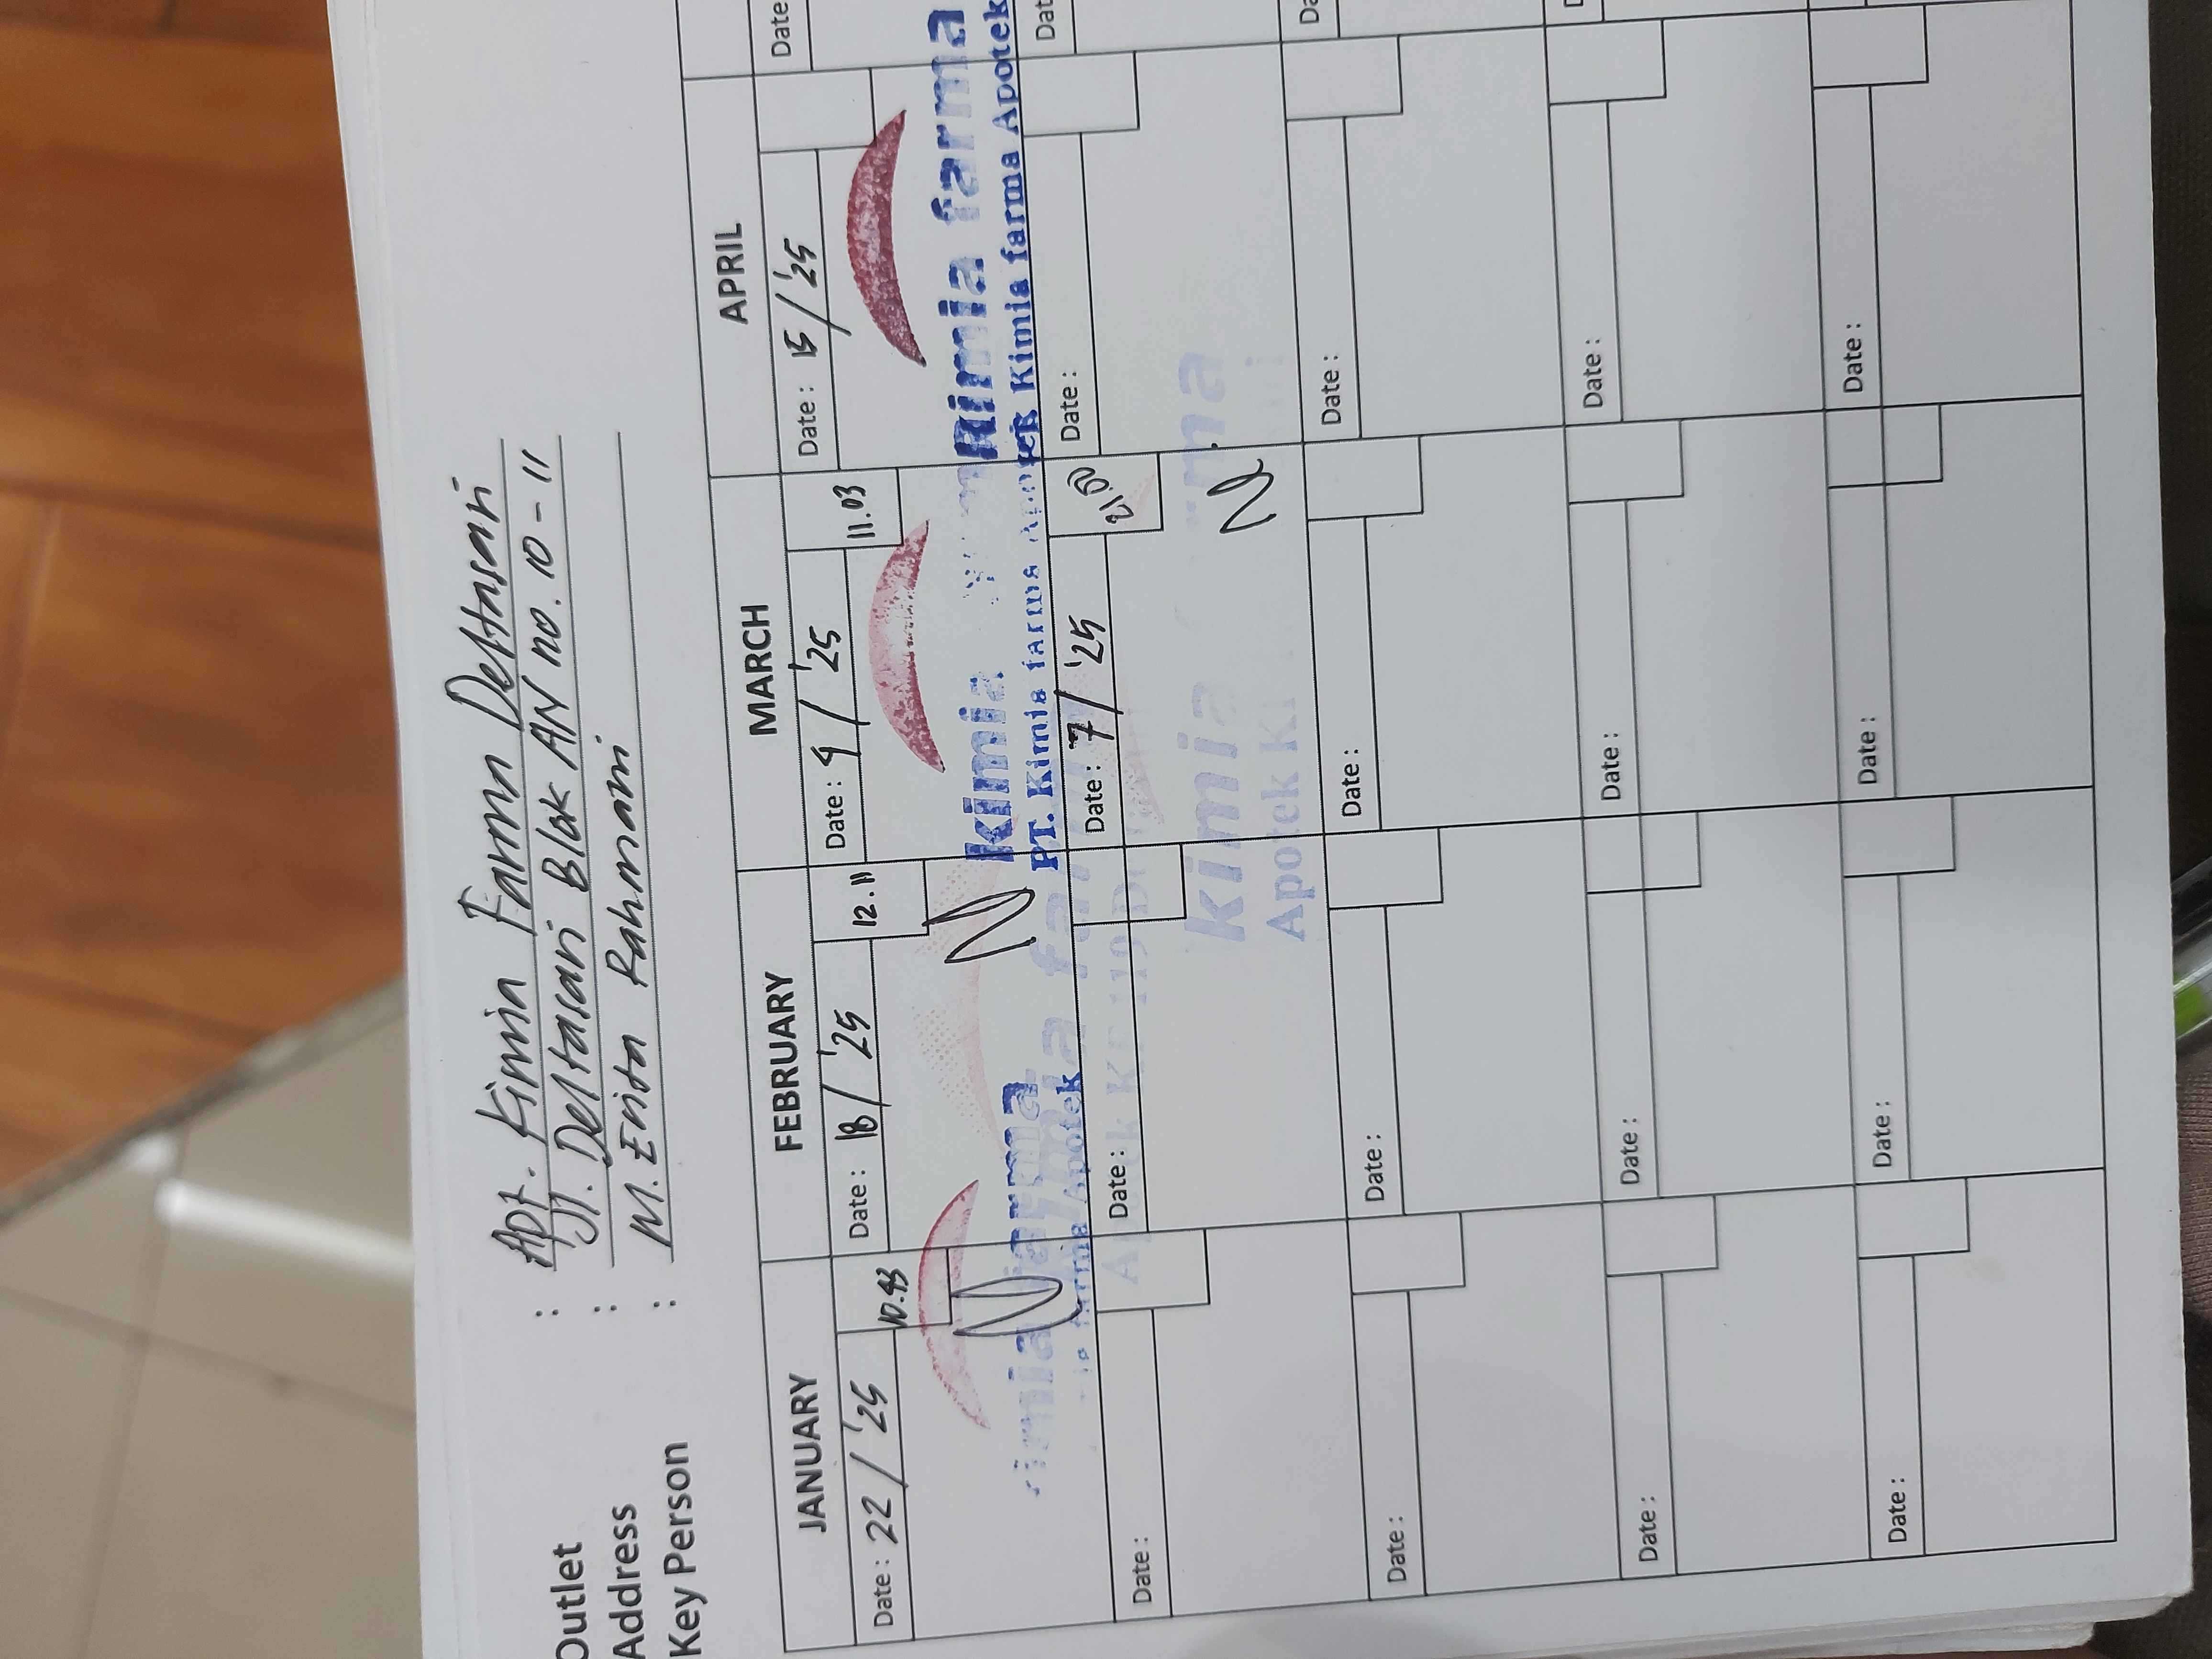 Outlet : Apt. Kimia Farma Deltasari
Address : Jl. Deltasari Blok AN no. 10 - 11
Key Person : M. Erita Rahmani
JANUARY FEBRUARY MARCH APRIL
Date : 22 / '25 10.43 Date : 18 / '25 12.11 Date : 4 / '25 11.03 Date : 15 / '25 Date
kimia farma
kimia farma
kimia farma
PT. Kimia farma Apotek
Kimia farma Apotek
Date : Date : Date : 7 / '25 Date : Dat
kimia
Apotek
Date : Date : Date : Date : Da
Date : Date : Date : Date : D
Date : Date : Date : Date :